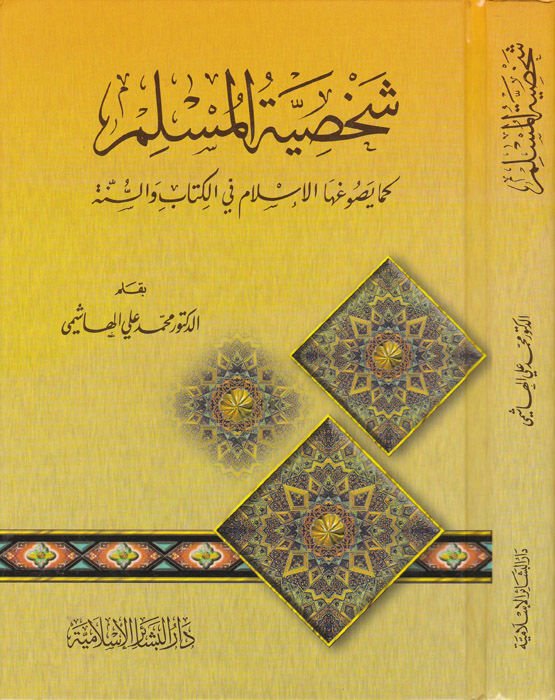 شَخْصِيَّةُ المُسْلِم
كما يَصُوغُهَا الإِسْلَام فِي الكِتَابِ وَالسُّنَّة
بقلم
الدكتور محمد علي الهاشمي
دَارُ البَشَائِر الإِسْلَامِيَّة
شَخْصِيَّةُ المُسْلِم
الدكتور محمد علي الهاشمي
دَارُ البَشَائِر الإِسْلَامِيَّة